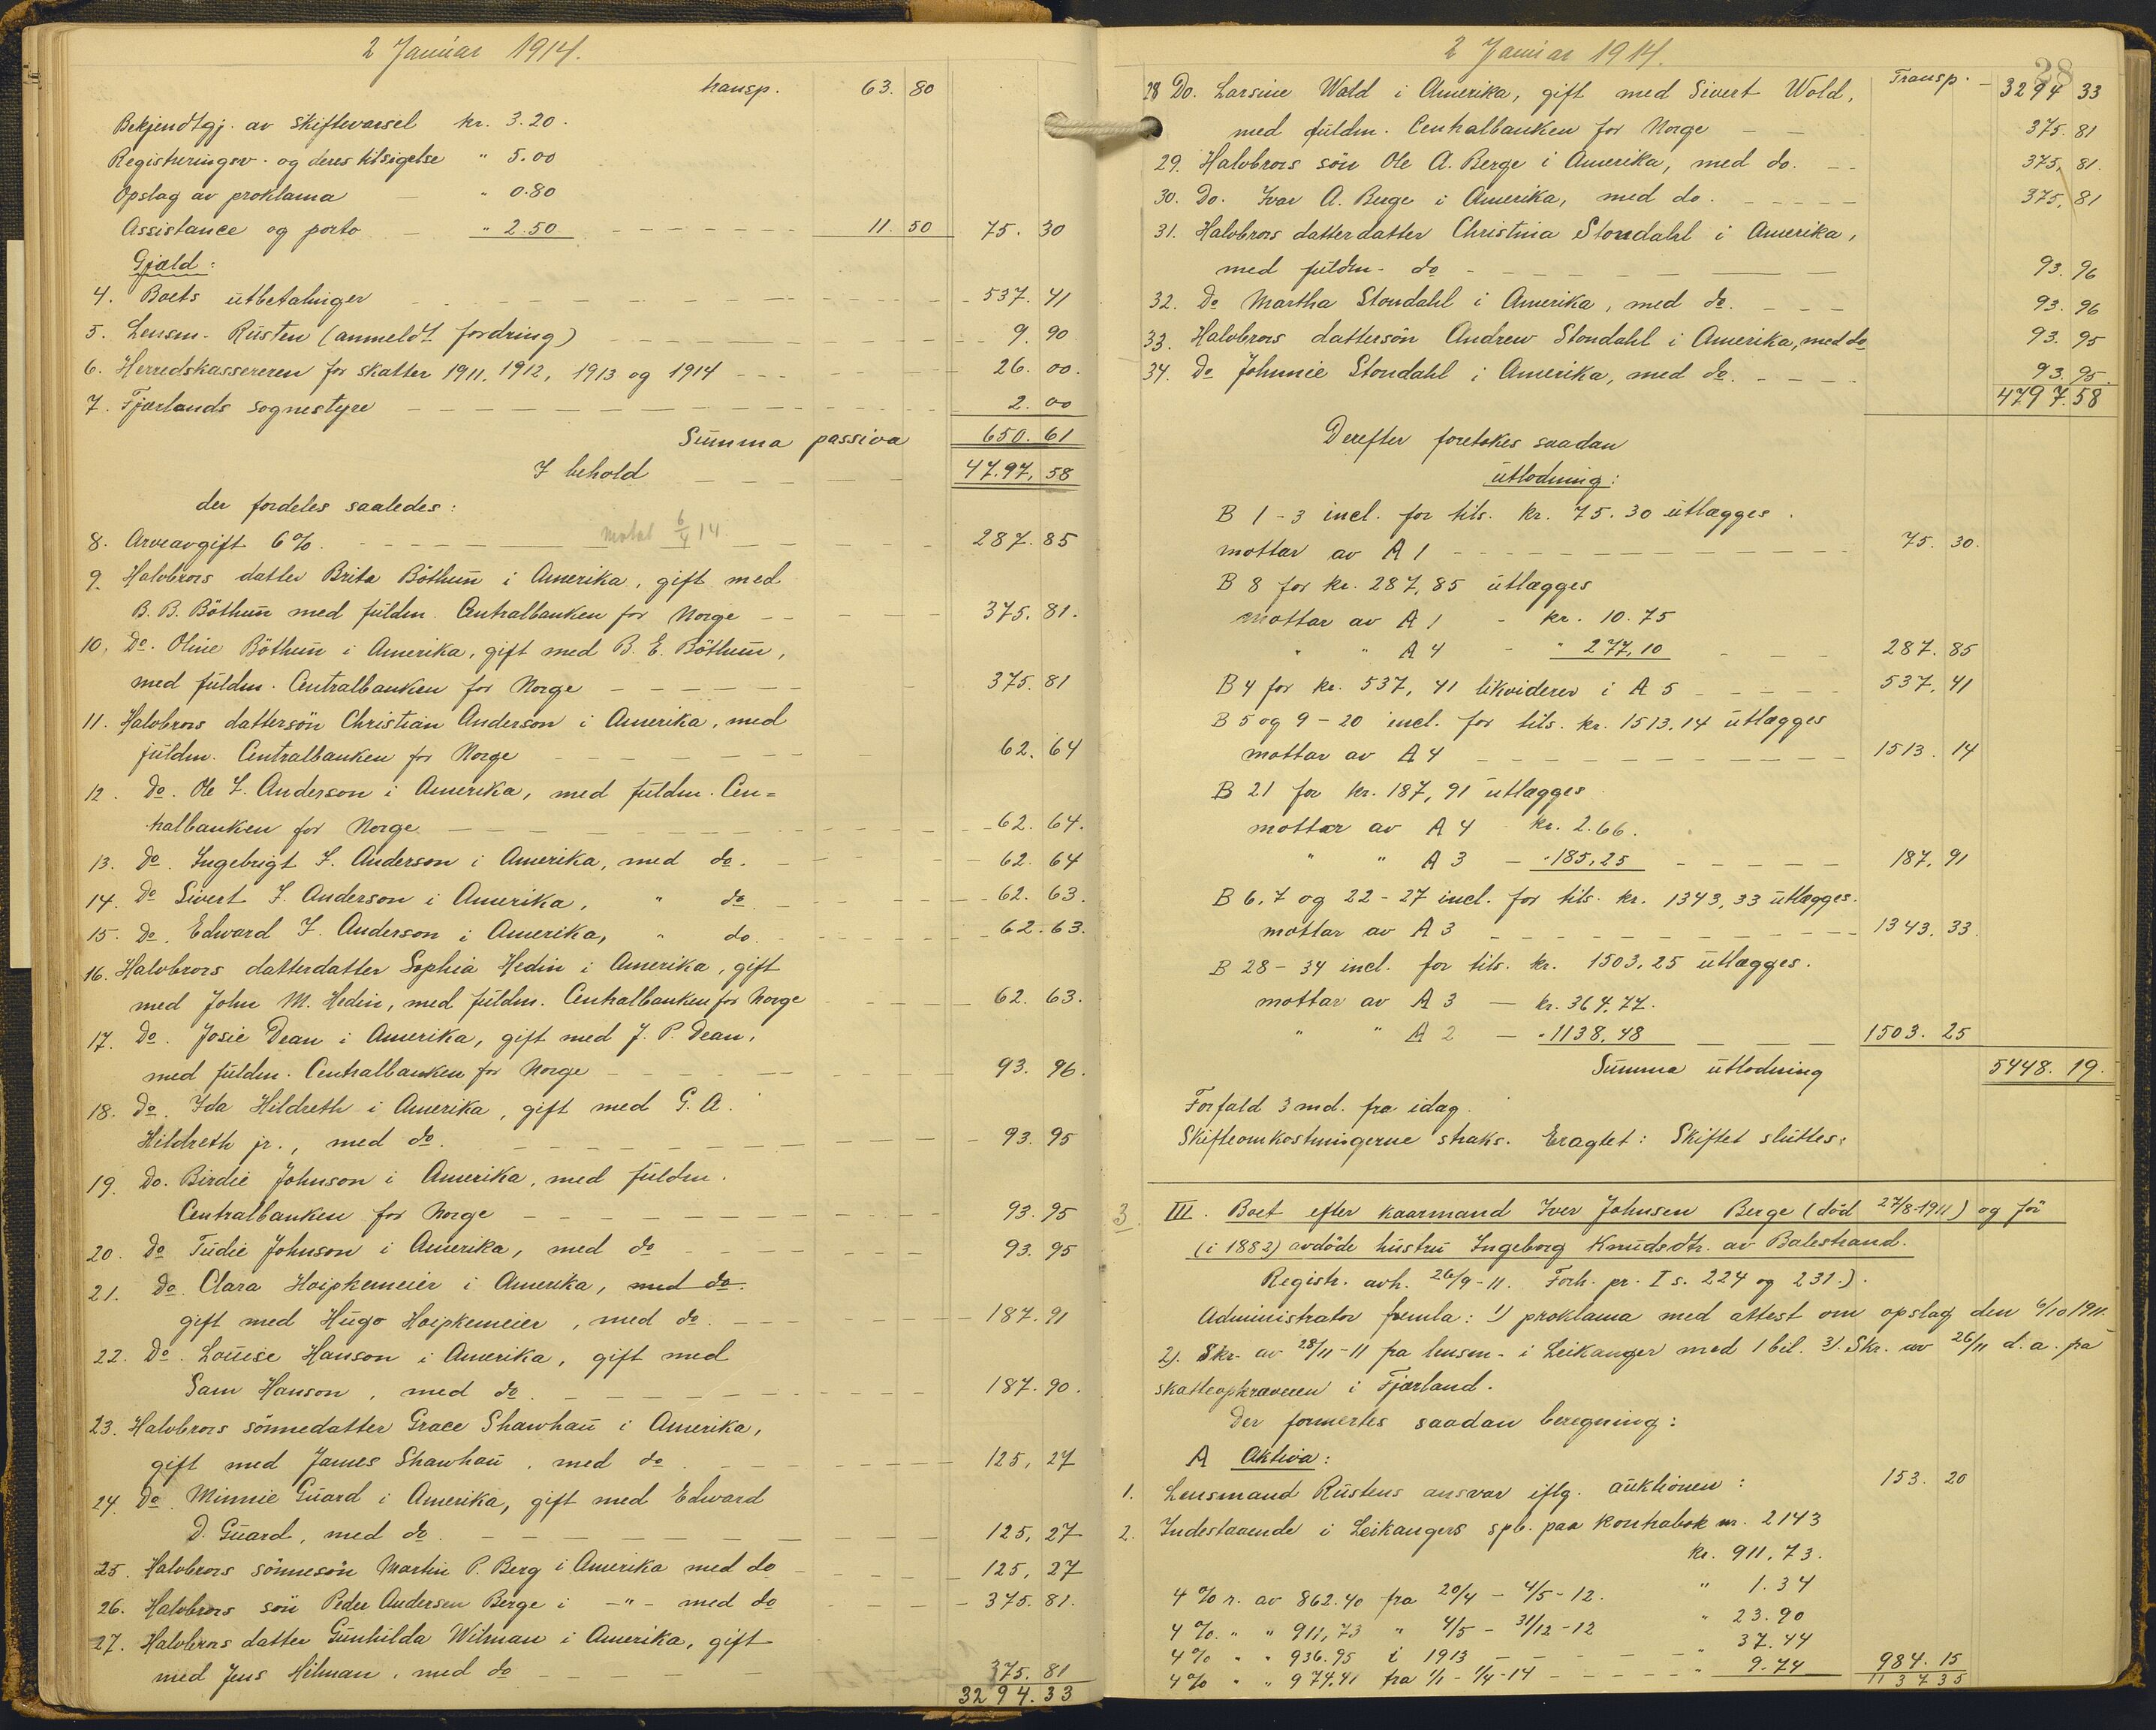 2 Januar 1914.
transp. 63. 80
Bekjendtgj. av skiftevarsel kr. 3.20.
Registreringsv. og deres tilsigelse " 5.00
Opslag av proklama — " 0.80
Assistance og porto — " 2.50 11. 50 75. 30
Gjæld:
4. Boets utbetalinger 537. 41
5. Lensm. Rusten (anmeldt fordring) 9. 90
6. Herredskassereren for skatter 1911, 1912, 1913 og 1914 26. 00.
7. Fjærlands sognestyre 2. 00
Summa passiva 650. 61
I behold 47.97, 58
der fordeles saaledes:
8. Arveavgift 6%. motat 6/4 14 287. 85
9. Halvbrors datter Brita Böthun i Amerika, gift med
B. B. Böthun med fuldm. Centralbanken for Norge 375. 81.
10. Do. Oline Böthun i Amerika, gift med B. E. Böthun,
med fuldm. Centralbanken for Norge 375. 81
11. Halvbrors dattersön Christian Anderson i Amerika, med
fuldm. Centralbanken for Norge 62. 64
12. Do. Ole I. Anderson i Amerika, med fuldm. Cen=
tralbanken for Norge 62. 64.
13. Do. Ingebrigt I. Anderson i Amerika, med do. 62. 64
14. Do Sivert I. Anderson i Amerika, " do 62. 63.
15. Do. Edward I. Anderson i Amerika, " do. 62. 63.
16. Halvbrors datterdatter Sophia Hedin i Amerika, gift
med John M. Hedin, med fuldm. Centralbanken for Norge 62. 63.
17. Do. Josie Dean i Amerika, gift med J. P. Dean,
med fuldm. Centralbanken for Norge 93. 96.
18. Do. Ida Hildreth i Amerika, gift med G. A.
Hildreth jr., med do. 93. 95
19. Do. Birdie Johnson i Amerika, med fuldm.
Centralbanken for Norge 93. 95
20. Do Tudie Johnson i Amerika, med do 93. 95
21. Do. Clara Hoipkemeier i Amerika, med do.
gift med Hugo Hoipkemeier, med do. 187. 91
22. Do. Louise Hanson i Amerika, gift med
Sam Hanson, med do. 187. 90.
23. Halvbrors sönnedatter Grace Shawhan i Amerika,
gift med James Shawhan, med do 125, 27
24. Do. Minnie Guard i Amerika, gift med Edward
D. Guard, med do. 125, 27
25. Halvbrors sönnesön Martin P. Berg i Amerika med do 125, 27
26. Halvbrors sön Peder Andersen Berge i -"- med do 375. 81.
27. Halvbrors datter Gunhilda Wilman i Amerika, gift
med Jens Hilman, med do 375. 81
3294. 33
2 Januar 1914.
28
28 Do. Larsine Wold i Amerika, gift med Sivert Wold, Transp. 3294 33
med fuldm. Centralbanken for Norge 375. 81
29. Halvbrors sön Ole A. Berge i Amerika, med do. 375, 81.
30. Do. Ivar A. Berge i Amerika, med do. 375, 81
31. Halvbrors datterdatter Christina Stondahl i Amerika,
med fuldm. do 93. 96
32. Do Martha Stondahl i Amerika, med do. 93. 96
33. Halvbrors dattersön Andrew Stondahl i Amerika, med do 93. 95
34. Do Johnnie Stondahl i Amerika, med do. 93. 95.
4797.58
Derefter foretokes saadan
utlodning:
B 1-3 incl. for tils. kr. 75.30 utlægges.
mottar av A 1 75. 30.
B 8 for kr. 287,85 utlægges
mottar av A 1 - kr. 10.75
" " A 4 - " 277,10 287. 85
B 4 for kr. 537, 41 likviderer i A 5 537, 41
B 5 og 9-20 incl. for tils. kr. 1513.14 utlægges
mottar av A 4 1513. 14
B 21 for kr. 187, 91 utlægges
mottar av A 4 kr. 2.66.
" " A 3 - " 185,25 187, 91
B 6, 7 og 22-27 incl. for tils. kr. 1343,33 utlægges.
mottar av A 3 1343. 33
B 28-34 incl. for tils. kr. 1503,25 utlægges.
mottar av A 3 — kr. 364,77.
" " A 2 — " 1138,48 1503. 25
Summa utlodning 5448. 19.
Forfald 3 md. fra idag.
Skifteomkostningerne straks. Eragtet: Skiftet sluttes.
3 III. Boet efter kaarmand Iver Johnsen Berge (död 27/8-1911) og för
(i 1882) avdöde hustru Ingeborg Knudsdtr. av Balestrand.
Registr. avh. 26/9-11. Forh. pr. I s. 224 og 231.).
Administrator fremla: 1) proklama med attest om opslag den 6/10 1911.
2). Skr. av 28/11-11 fra lensm. i Leikanger med 1 bil. 3). Skr. av 26/11 d.a. fra
skatteopkræveren i Fjærland.
Der formertes saadan beregning:
A Aktiva:
1. Lensmand Rustens ansvar iflg. auktionen: 153. 20
2. Indestaaende i Leikangers spb. paa kontrabok nr. 2143
kr. 911,73.
4 % r. av 862.40 fra 20/4 - 4/5-12. " 1.34
4 %. " " 911,73 " 4/5 - 31/12-12 " 23.90
4 % " " 936.95 i 1913 " 37.44
4 % " " 974,41 fra 1/1 - 1/4-14 " 9.74 984. 15
1137 35